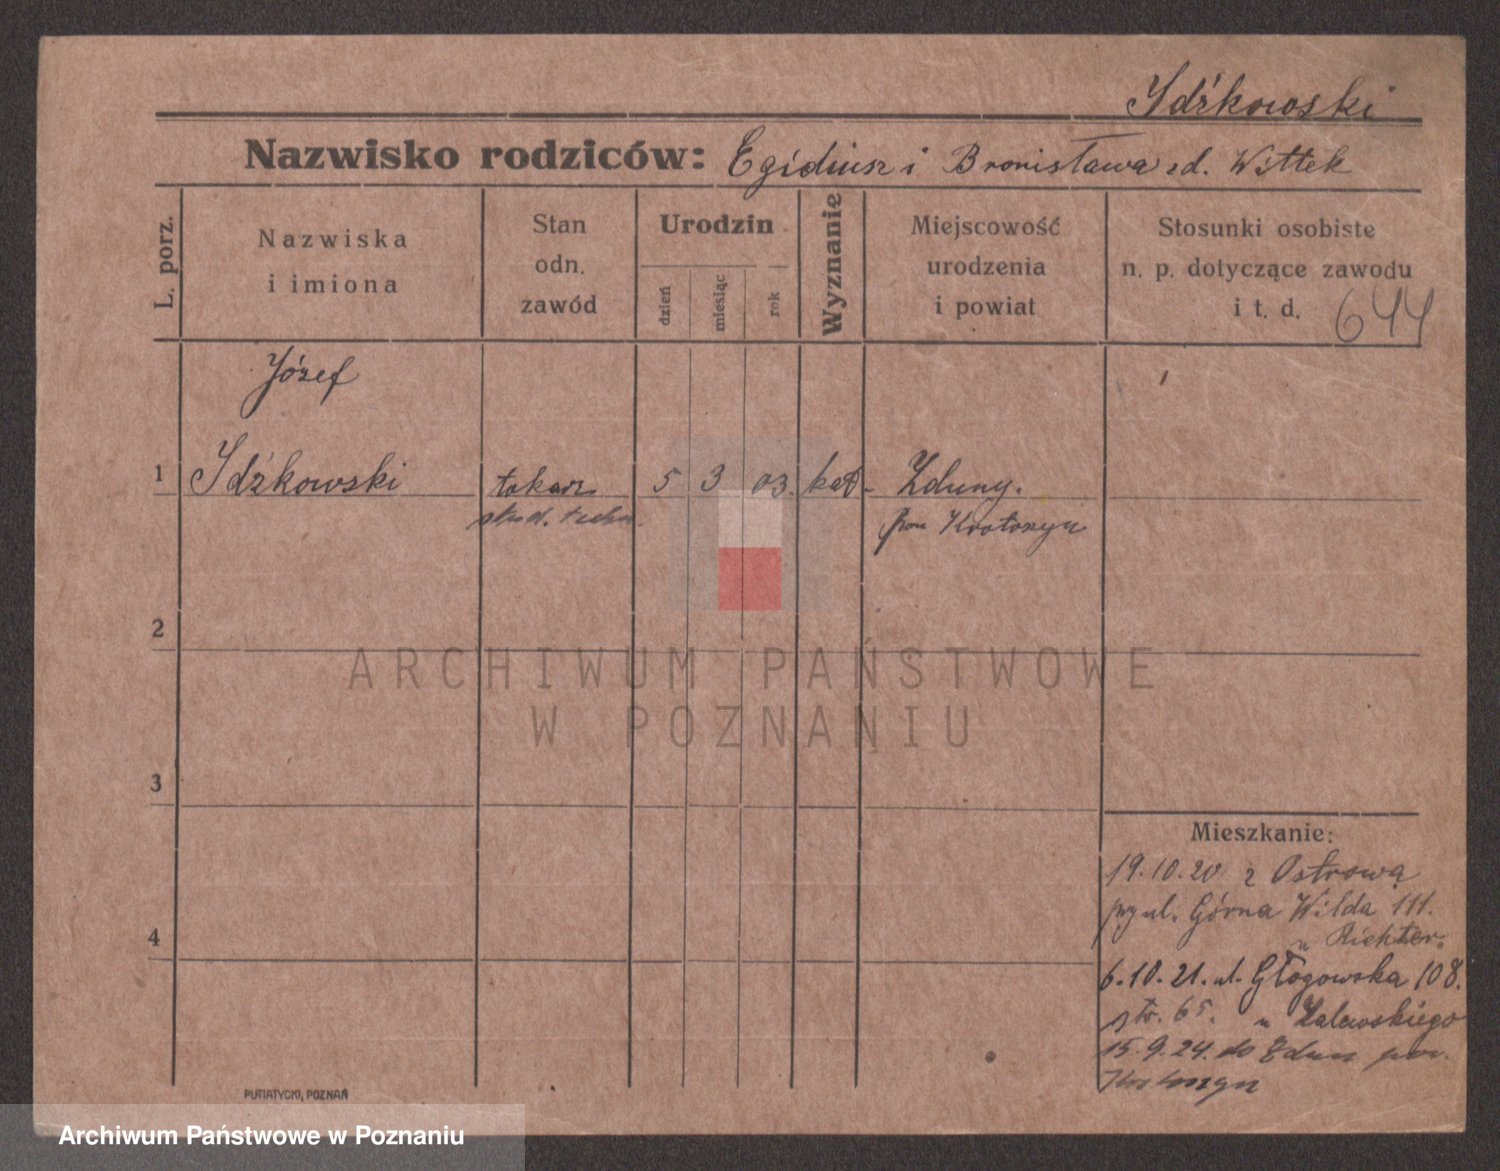 Idźkowski
Nazwisko rodziców: Egidiusz i Bronisława zd. Wittek
L. porz.
Nazwiska
i imiona
Stan
odn.
zawód
Urodzin
dzień
miesiąc
rok
Wyznanie
Miejscowość
urodzenia
i powiat
Stosunki osobiste
n. p. dotyczące zawodu
i t. d.
644
Józef
1 Idźkowski tokarz 5 3 03. kat. Zduny.
stud. techn. pow Krotoszyn
2
ARCHIWUM PAŃSTWOWE
W POZNANIU
3
Mieszkanie:
19.10.20 z Ostrowa
przy ul. Górna Wilda 111.
u Richter.
4
6.10.21. ul. Głogowska 108.
str. 65. u Zalewskiego
15.9.24. do Zdun pow.
Krotoszyn
PUTIATYCKI, POZNAŃ
Archiwum Państwowe w Poznaniu